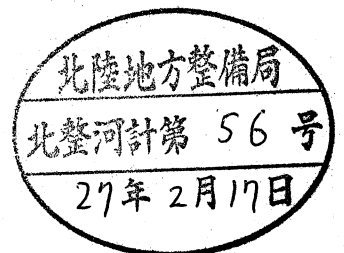 北陸地方整備局
北整河計第 56 号
27年2月17日